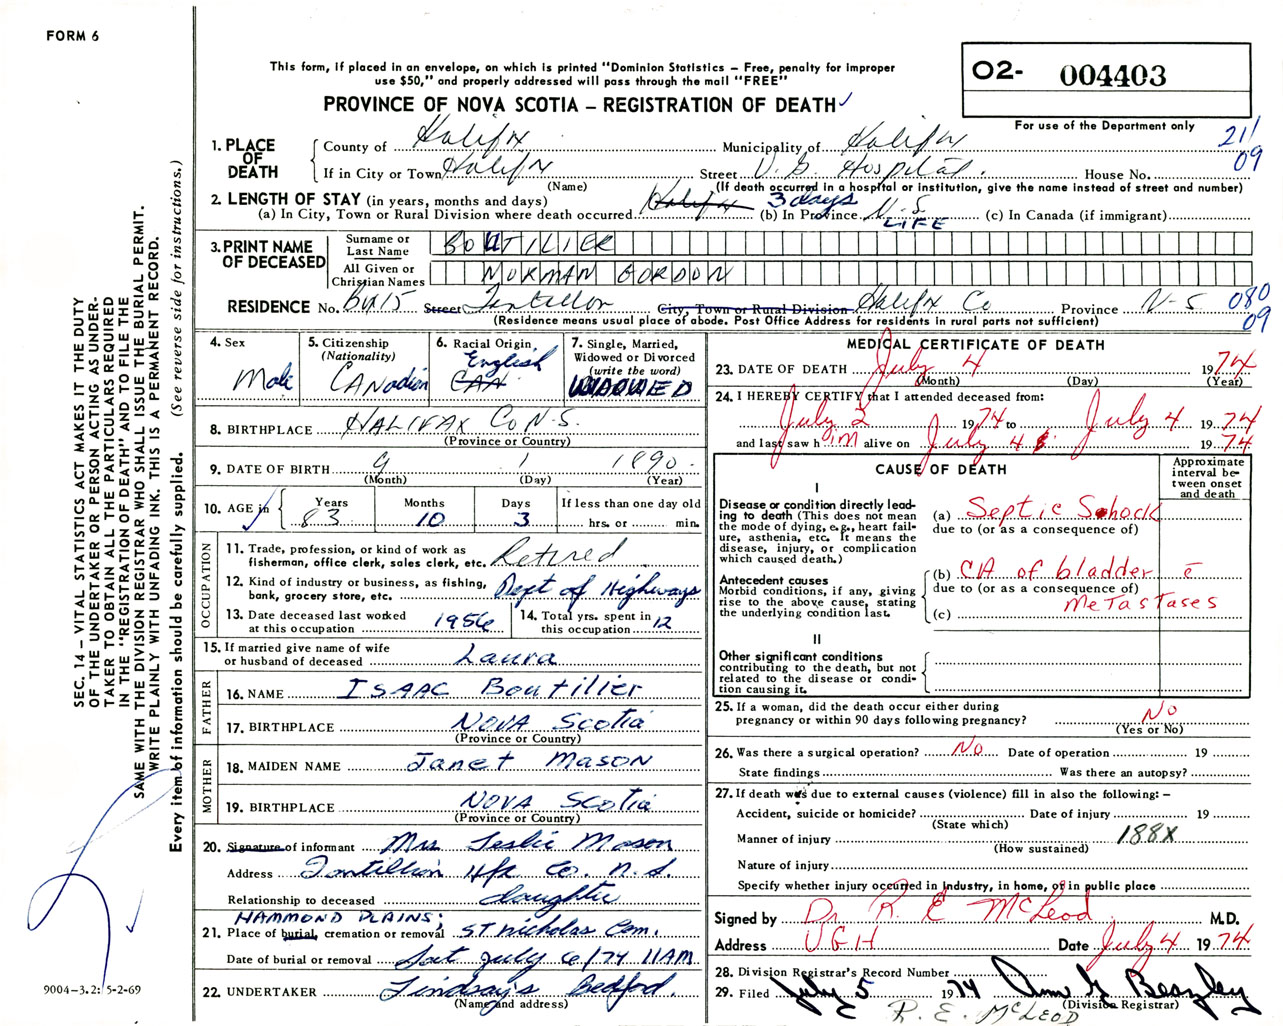 FORM 6
This form, if placed in an envelope, on which is printed "Dominion Statistics – Free, penalty for improper
use $50," and properly addressed will pass through the mail "FREE"
PROVINCE OF NOVA SCOTIA – REGISTRATION OF DEATH
O2- 004403
For use of the Department only
211
09
1. PLACE OF DEATH
County of Halifx Municipality of Halifx
If in City or Town Halifx Street V.G. Hospital. House No.
(Name) (If death occurred in a hospital or institution, give the name instead of street and number)
2. LENGTH OF STAY (in years, months and days)
(a) In City, Town or Rural Division where death occurred Halifx 3 days (b) In Province N.S. LIFE (c) In Canada (if immigrant)
3. PRINT NAME OF DECEASED
Surname or Last Name BOUTILIER
All Given or Christian Names NORMAN GORDON
RESIDENCE No. Bx15 Street Tantallon City, Town or Rural Division Halifx Co Province N-S 080
09
(Residence means usual place of abode. Post Office Address for residents in rural parts not sufficient)
4. Sex
Male
5. Citizenship
(Nationality)
CANadian
6. Racial Origin
English
CAN
7. Single, Married,
Widowed or Divorced
(write the word)
WIDOWED
8. BIRTHPLACE HALIFAX Co N.S.
(Province or Country)
9. DATE OF BIRTH 9 1 1890.
(Month) (Day) (Year)
10. AGE in
Years 83
Months 10
Days 3
If less than one day old
hrs. or min.
OCCUPATION
11. Trade, profession, or kind of work as
fisherman, office clerk, sales clerk, etc. Retired
12. Kind of industry or business, as fishing,
bank, grocery store, etc. Dept of Highways
13. Date deceased last worked
at this occupation 1956
14. Total yrs. spent in
this occupation 12
15. If married give name of wife
or husband of deceased Laura
FATHER
16. NAME ISAAC Boutilier
17. BIRTHPLACE NOVA Scotia
(Province or Country)
MOTHER
18. MAIDEN NAME Janet Mason
19. BIRTHPLACE NOVA Scotia
(Province or Country)
20. Signature of informant Mrs Leslie Mason
Address Tantillion Hfx Co. N.S.
Relationship to deceased daughter
HAMMOND PLAINS;
21. Place of burial, cremation or removal ST Nicholas Cem.
Date of burial or removal Sat July 6/74 11AM
22. UNDERTAKER Lindsay's Bedford.
(Name and address)
MEDICAL CERTIFICATE OF DEATH
23. DATE OF DEATH July 4 1974
(Month) (Day) (Year)
24. I HEREBY CERTIFY that I attended deceased from:
July 2 1974 to July 4 1974
and last saw him alive on July 4 1974
CAUSE OF DEATH
Approximate
interval be-
tween onset
and death
I
Disease or condition directly lead-
ing to death (This does not mean
the mode of dying, e.g., heart fail-
ure, asthenia, etc. It means the
disease, injury, or complication
which caused death.)
(a) Septic Shock
due to (or as a consequence of)
Antecedent causes
Morbid conditions, if any, giving
rise to the above cause, stating
the underlying condition last.
(b) CA of bladder c̄
due to (or as a consequence of)
Metastases
(c)
II
Other significant conditions
contributing to the death, but not
related to the disease or condi-
tion causing it.
25. If a woman, did the death occur either during
pregnancy or within 90 days following pregnancy? No
(Yes or No)
26. Was there a surgical operation? No Date of operation 19
State findings Was there an autopsy?
27. If death was due to external causes (violence) fill in also the following: –
Accident, suicide or homicide? Date of injury 19
(State which)
Manner of injury 188X
(How sustained)
Nature of injury
Specify whether injury occurred in industry, in home, or in public place
Signed by Dr R E McLeod M.D.
Address VGH Date July 4 1974
28. Division Registrar's Record Number
29. Filed July 5 1974 Ann G Beazley
(Division Registrar)
R. E. McLEOD
SEC. 14 – VITAL STATISTICS ACT MAKES IT THE DUTY
OF THE UNDERTAKER OR PERSON ACTING AS UNDER-
TAKER TO OBTAIN ALL THE PARTICULARS REQUIRED
IN THE "REGISTRATION OF DEATH" AND TO FILE THE
SAME WITH THE DIVISION REGISTRAR WHO SHALL ISSUE THE BURIAL PERMIT.
WRITE PLAINLY WITH UNFADING INK. THIS IS A PERMANENT RECORD.
Every item of information should be carefully supplied. (See reverse side for instructions.)
9004-3.2: 5-2-69